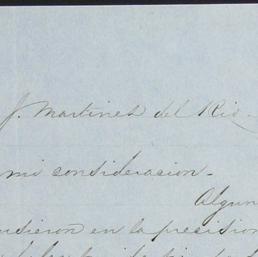 J. Martinez del Rio.
mi consideracion.
Algun
usieron en la precision